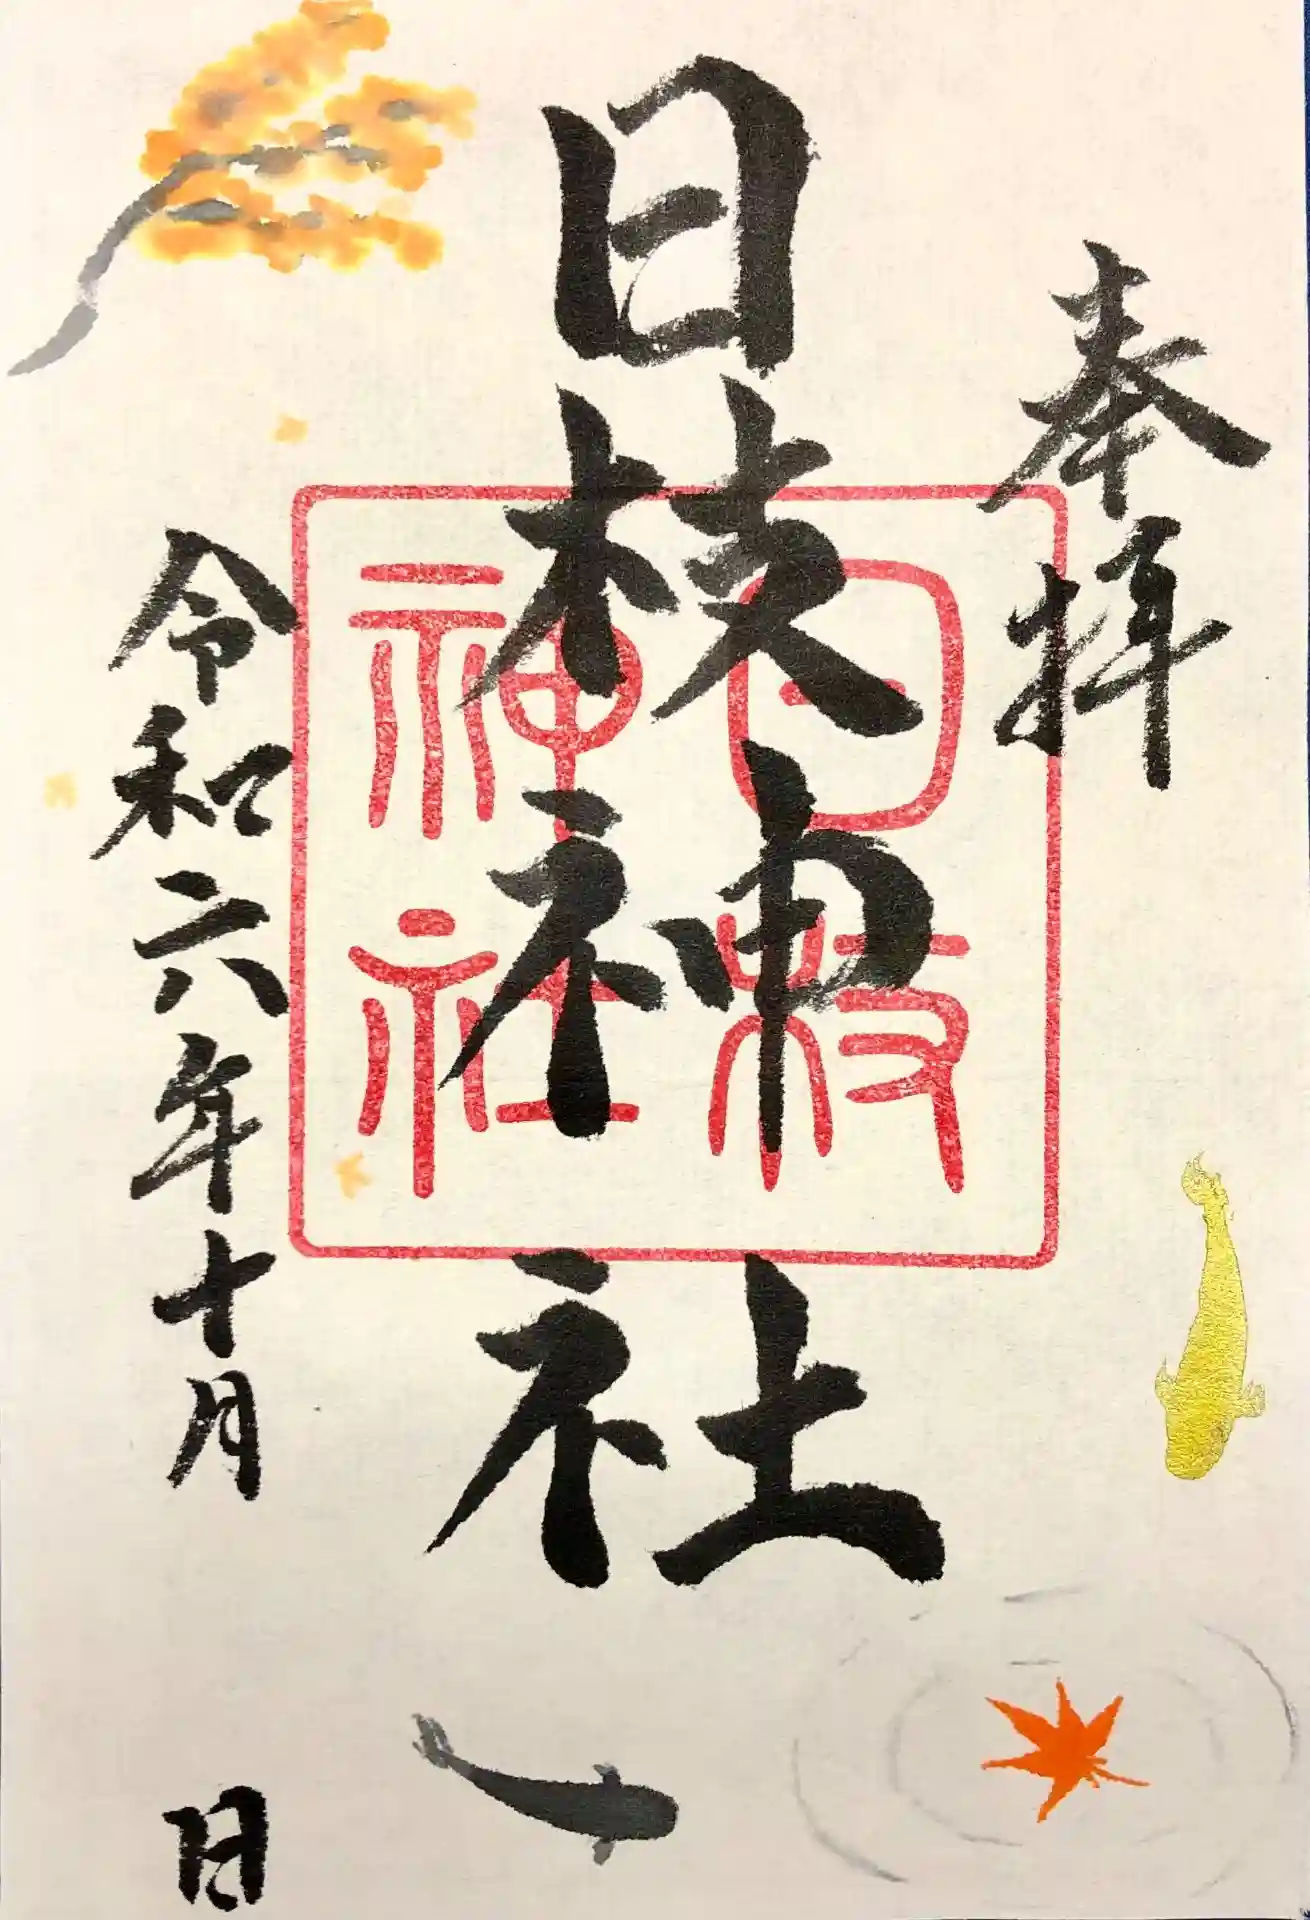 奉拝
日枝神社
日枝
神社
令和六年十月 日